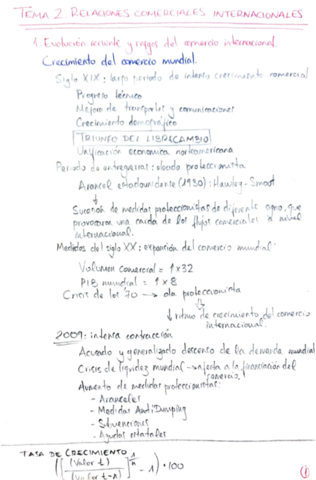 TEMA 2. RELACIONES COMERCIALES INTERNACIONALES
1. Evolución reciente y rasgos del comercio internacional.
Crecimiento del comercio mundial.
Siglo XIX: largo periodo de intenso crecimiento comercial
Progreso técnico
Mejora de transportes y comunicaciones
Crecimiento demográfico
TRIUNFO DEL LIBRECAMBIO
Unificación económica norteamericana
Periodo de entreguerras: oleada proteccionista
Arancel estadounidense (1930): Hawley-Smoot
↓
Sucesión de medidas proteccionistas de diferente signo, que
provocaron una caída de los flujos comerciales a nivel
internacional.
Mediados del siglo XX: expansión del comercio mundial
Volumen comercial = 1x32
PIB mundial = 1x8
Crisis de los 70 → ola proteccionista
↓ ritmo de crecimiento del comercio
internacional.
2009: intensa contracción
Acusado y generalizado descenso de la demanda mundial
Crisis de liquidez mundial → afecta a la financiación del
comercio.
Aumento de medidas proteccionistas:
- Aranceles
- Medidas AntiDumping
- Subvenciones
- Ayudas estatales
TASA DE CRECIMIENTO
(((Valor t) / (Valor t-1))^(1/n) - 1) · 100
1